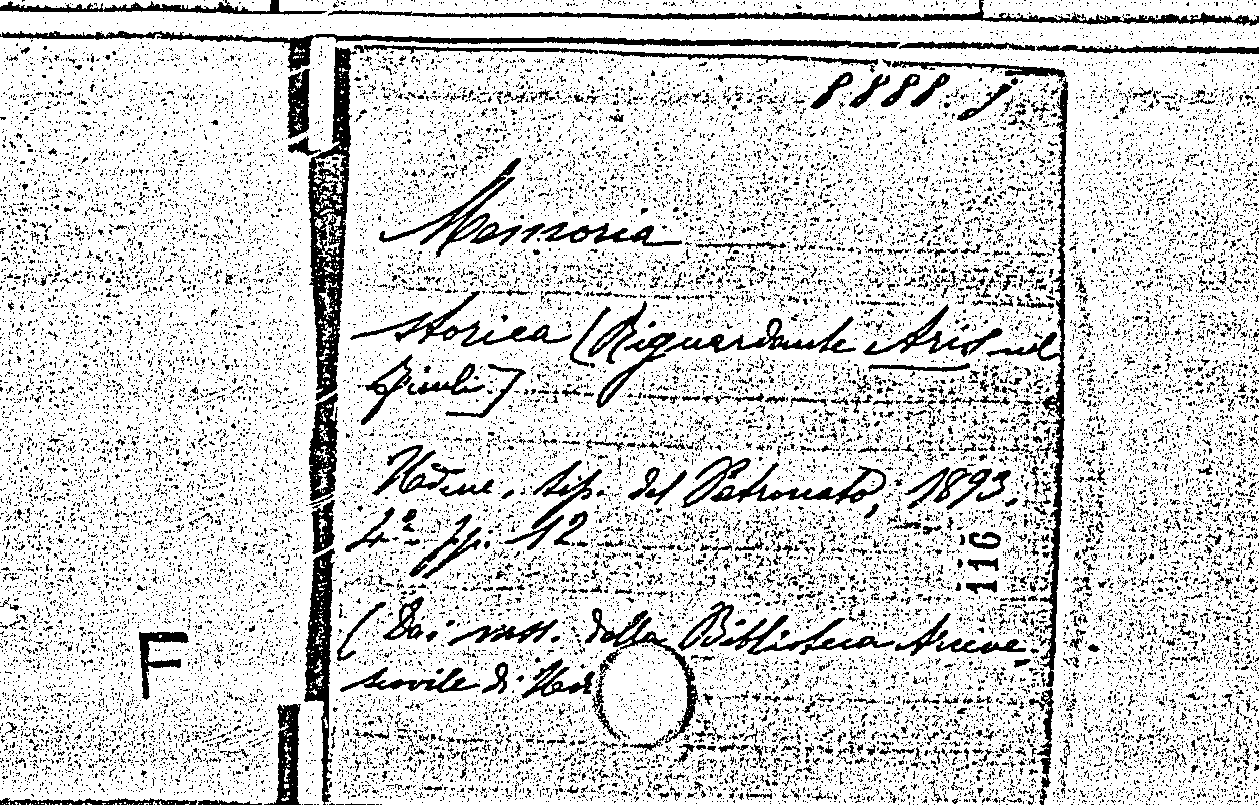 8888. j
Memoria
storica [Riguardante Aris nel
Friuli.]
Udine, tip. del Patronato, 1893.
4.º pp. 12
116
(Dai mss. della Biblioteca Arcive-
scovile di Udi
F